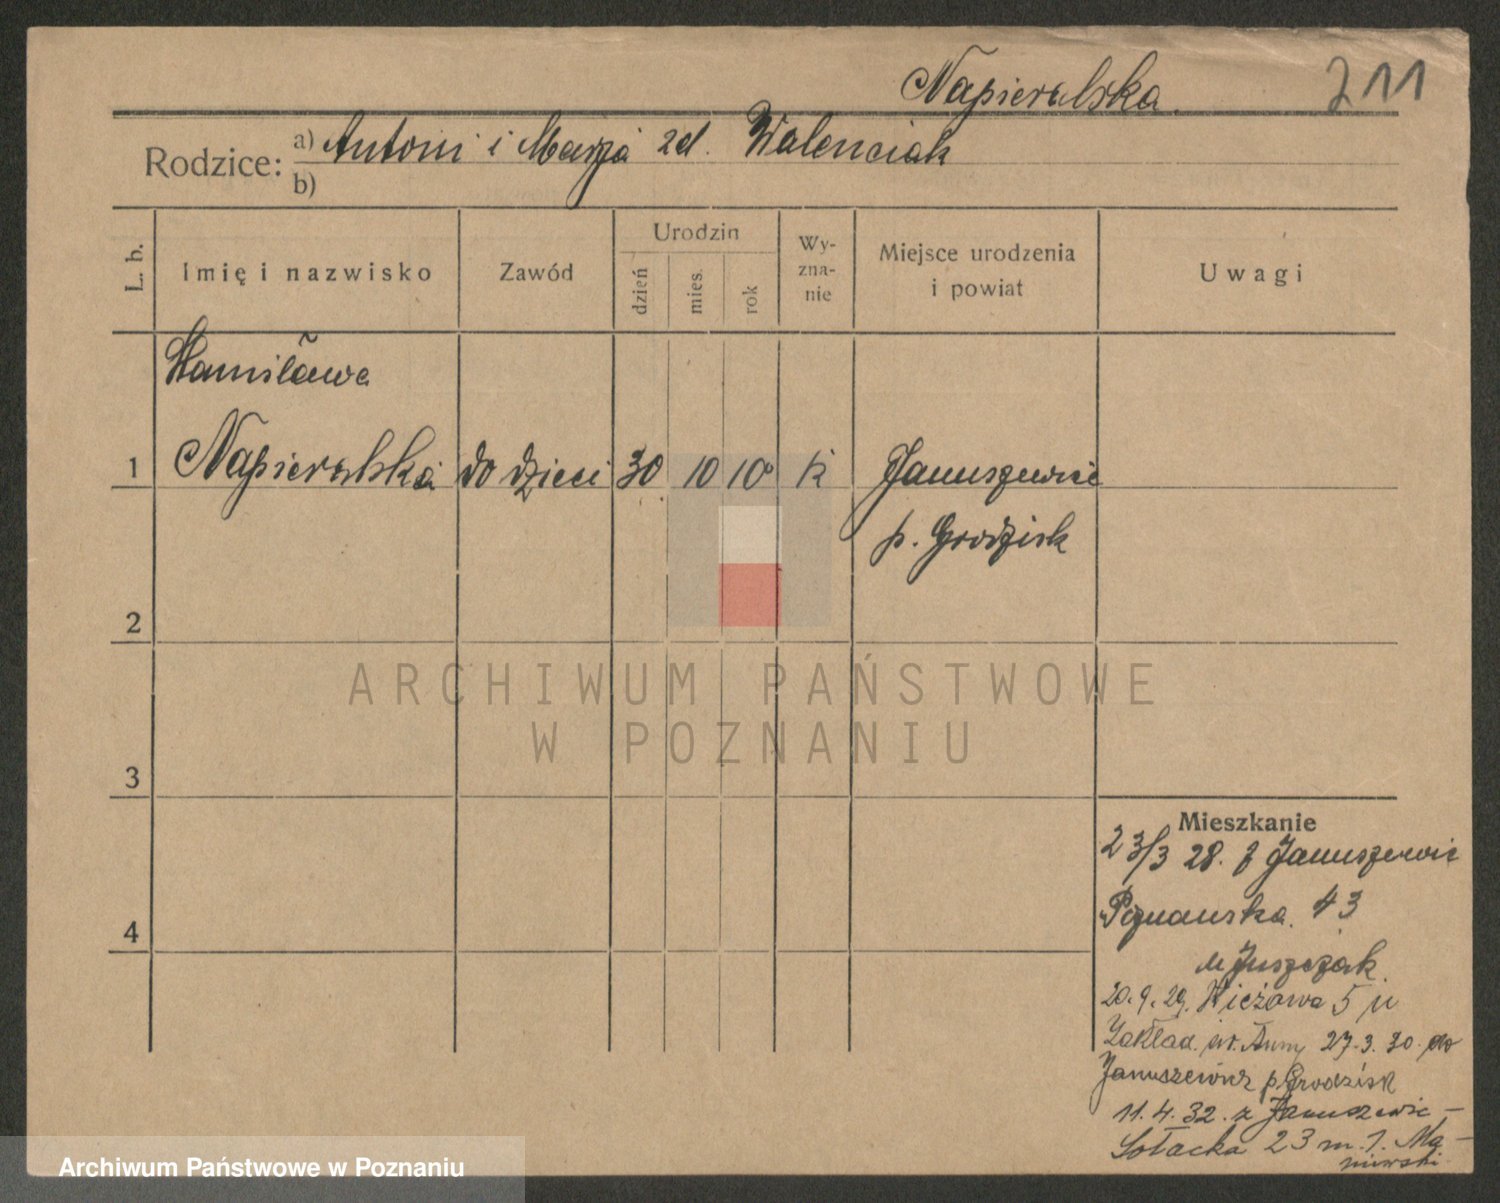 Napieralska. 211
Rodzice: a) Antoni i Marja zd. Walenciak
b)
L. b.
Imię i nazwisko
Zawód
Urodzin
dzień
mies.
rok
Wy-
zna-
nie
Miejsce urodzenia
i powiat
Uwagi
Stanisława
1 Napieralska do dzieci 30 10 10 k Januszewic
p. Grodzisk
2
3
4
ARCHIWUM PAŃSTWOWE
W POZNANIU
Mieszkanie
23/3 28. z Januszewic
Poznańska. 43
u Juszczak.
20.9.29. Wieżowa 5 u
Zakład. św. Anny 27.3.30 do
Januszewicz p Grodzisk
11.4.32. z Januszewic -
Sołacka 23 m. 1. Ma-
niewski
Archiwum Państwowe w Poznaniu